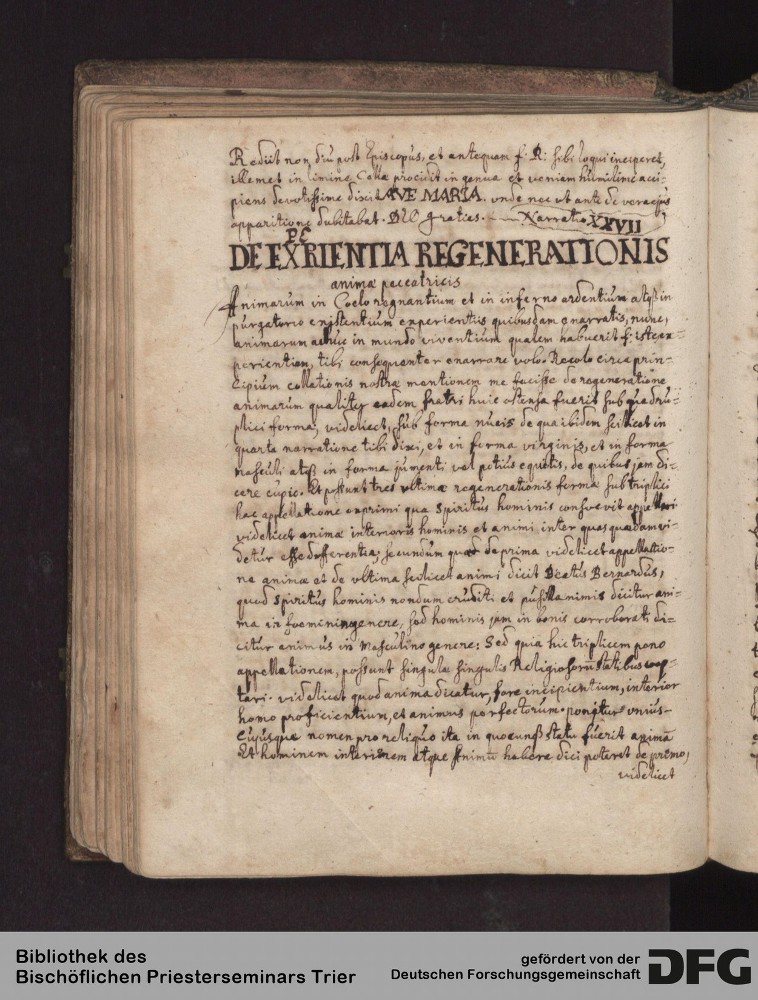 Rediit non diu post Episcopus, et antequam f: R: sibi loqui inciperet,
illemet in limine Cellæ procidit in genua et veniam humilime acci-
piens devotissime dixit AVE MARIA. unde nec ut ante de vera ejus
apparitione dubitabat. DEO graties. Narratio XXVII
DE EXPERIENTIA REGENERATIONIS
animæ peccatricis
Animarum in Coelo regnantium et in inferno ardentium atq3 in
purgatorio existentium experientiis quibusdam enarratis, nunc,
animarum adhuc in mundo viventium qualem habuerit f: iste ex-
perientiam, tibi consequenter enarrare volo. Recolo circa prin-
cipium collationis nostræ mentionem me fecisse de regeneratione
animarum qualiter eadem fratri huic ostensa fuerit sub quadru-
plici forma, videlicet, sub forma nucis de qua ibidem scilicet in
quarta narratione tibi dixi, et in forma virginis, et in forma
masculi atq3 in forma jumenti vel potius equitis, de quibus jam di-
cere cupio. Et possunt tres ultimæ regenerationis formæ sub triplici
hac appellatione exprimi qua Spiritus hominis consuevit appellari
videlicet animæ interioris hominis et animi, inter quas quædam vi-
detur esse differentia; secundum quod de prima videlicet appellatio-
ne animæ et de ultima scilicet animi dicit Beatus Bernardus,
quod Spiritus hominis nondum eruditi et pusillanimis dicitur ani-
ma in foeminino genere, sed hominis jam in bonis corroborati di-
citur animus in Masculino genere: Sed quia hic triplicem pono
appellationem, possunt singulæ singulis Religiosorum statibus coap-
tari. videlicet quod anima dicatur, fore incipientium, interior
homo proficientium, et animus perfectorum. ponitur unius-
cujusque nomen pro reliquo ita in quocunq3 statu fuerit anima
Et hominem interiorem atque Animum habere dici poterit de primo,
videlicet
Bibliothek des
Bischöflichen Priesterseminars Trier
gefördert von der
Deutschen Forschungsgemeinschaft
DFG